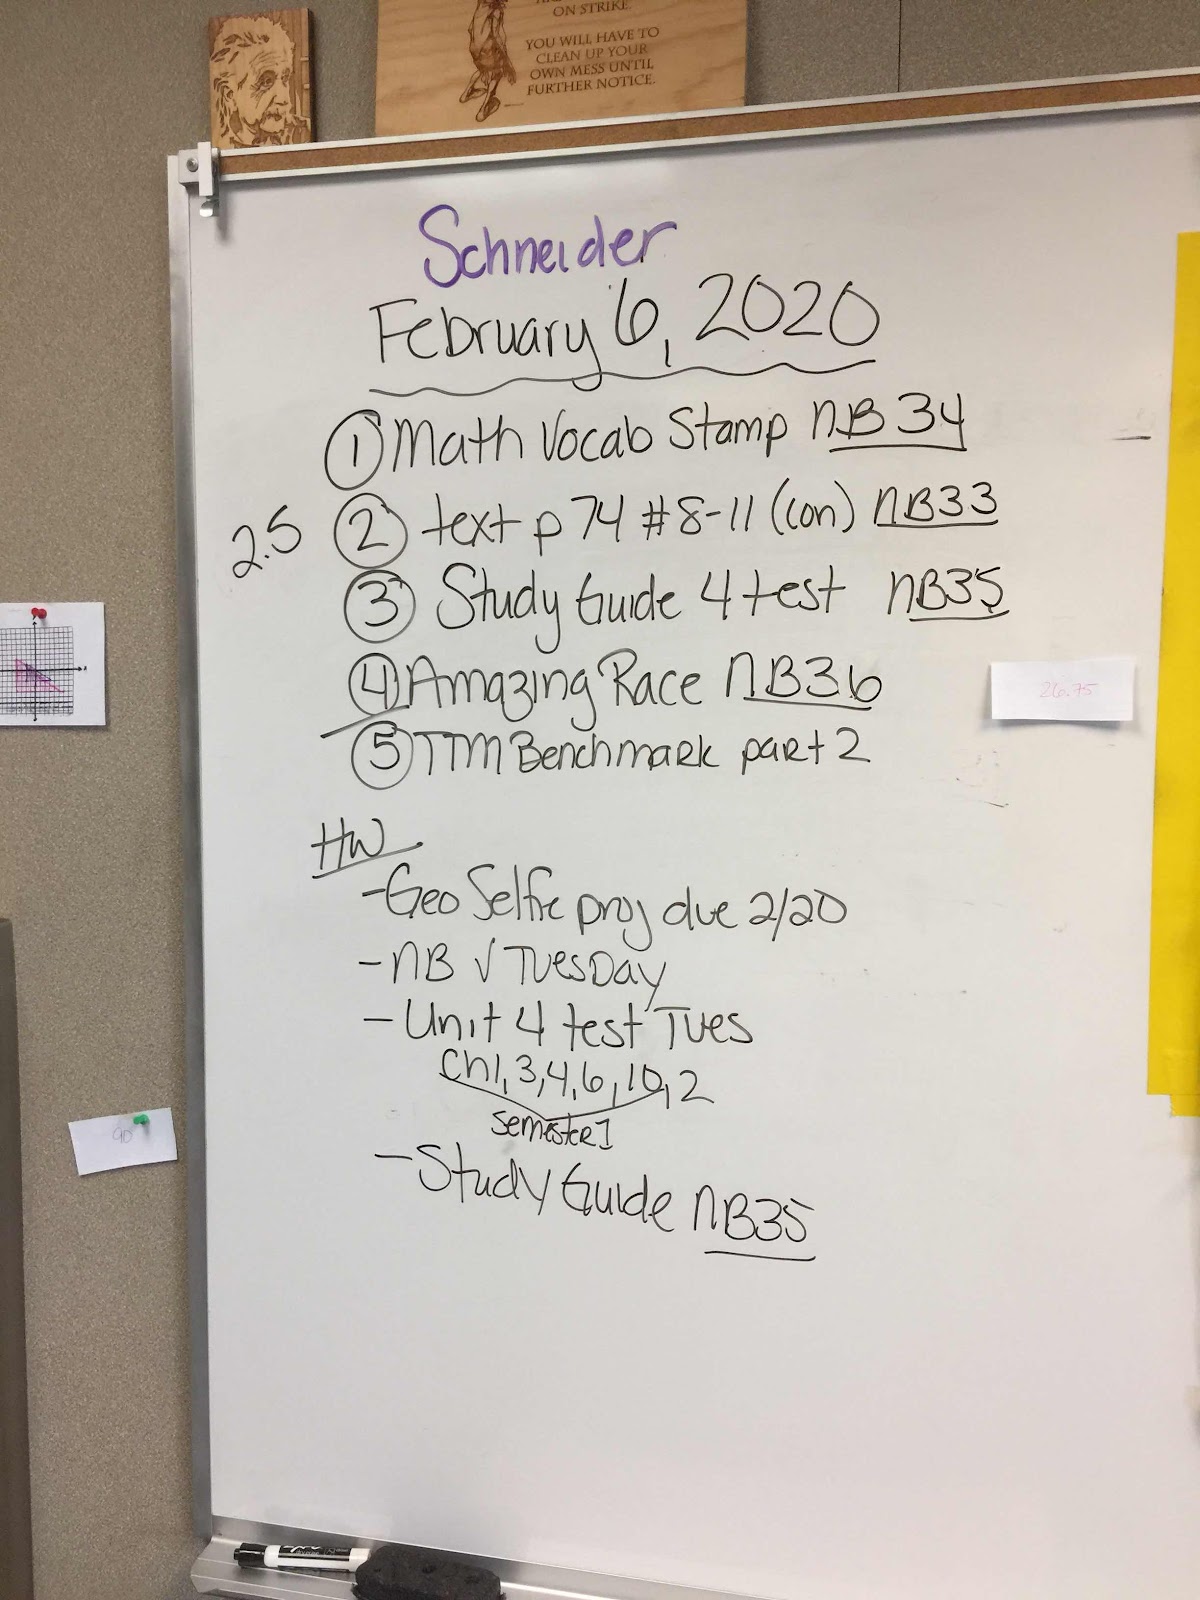 ON STRIKE
YOU WILL HAVE TO
CLEAN UP YOUR
OWN MESS UNTIL
FURTHER NOTICE.
Schneider
February 6, 2020
① Math Vocab Stamp NB 34
2.5 ② text p 74 #8-11 (con) NB33
③ Study Guide 4 test NB35
④ Amazing Race NB36
⑤ TTM Benchmark part 2
26.75
HW
- Geo Selfie proj due 2/20
- NB √ Tuesday
- Unit 4 test Tues
Ch1, 3, 4, 6, 10, 2
Semester 1
- Study Guide NB35
90